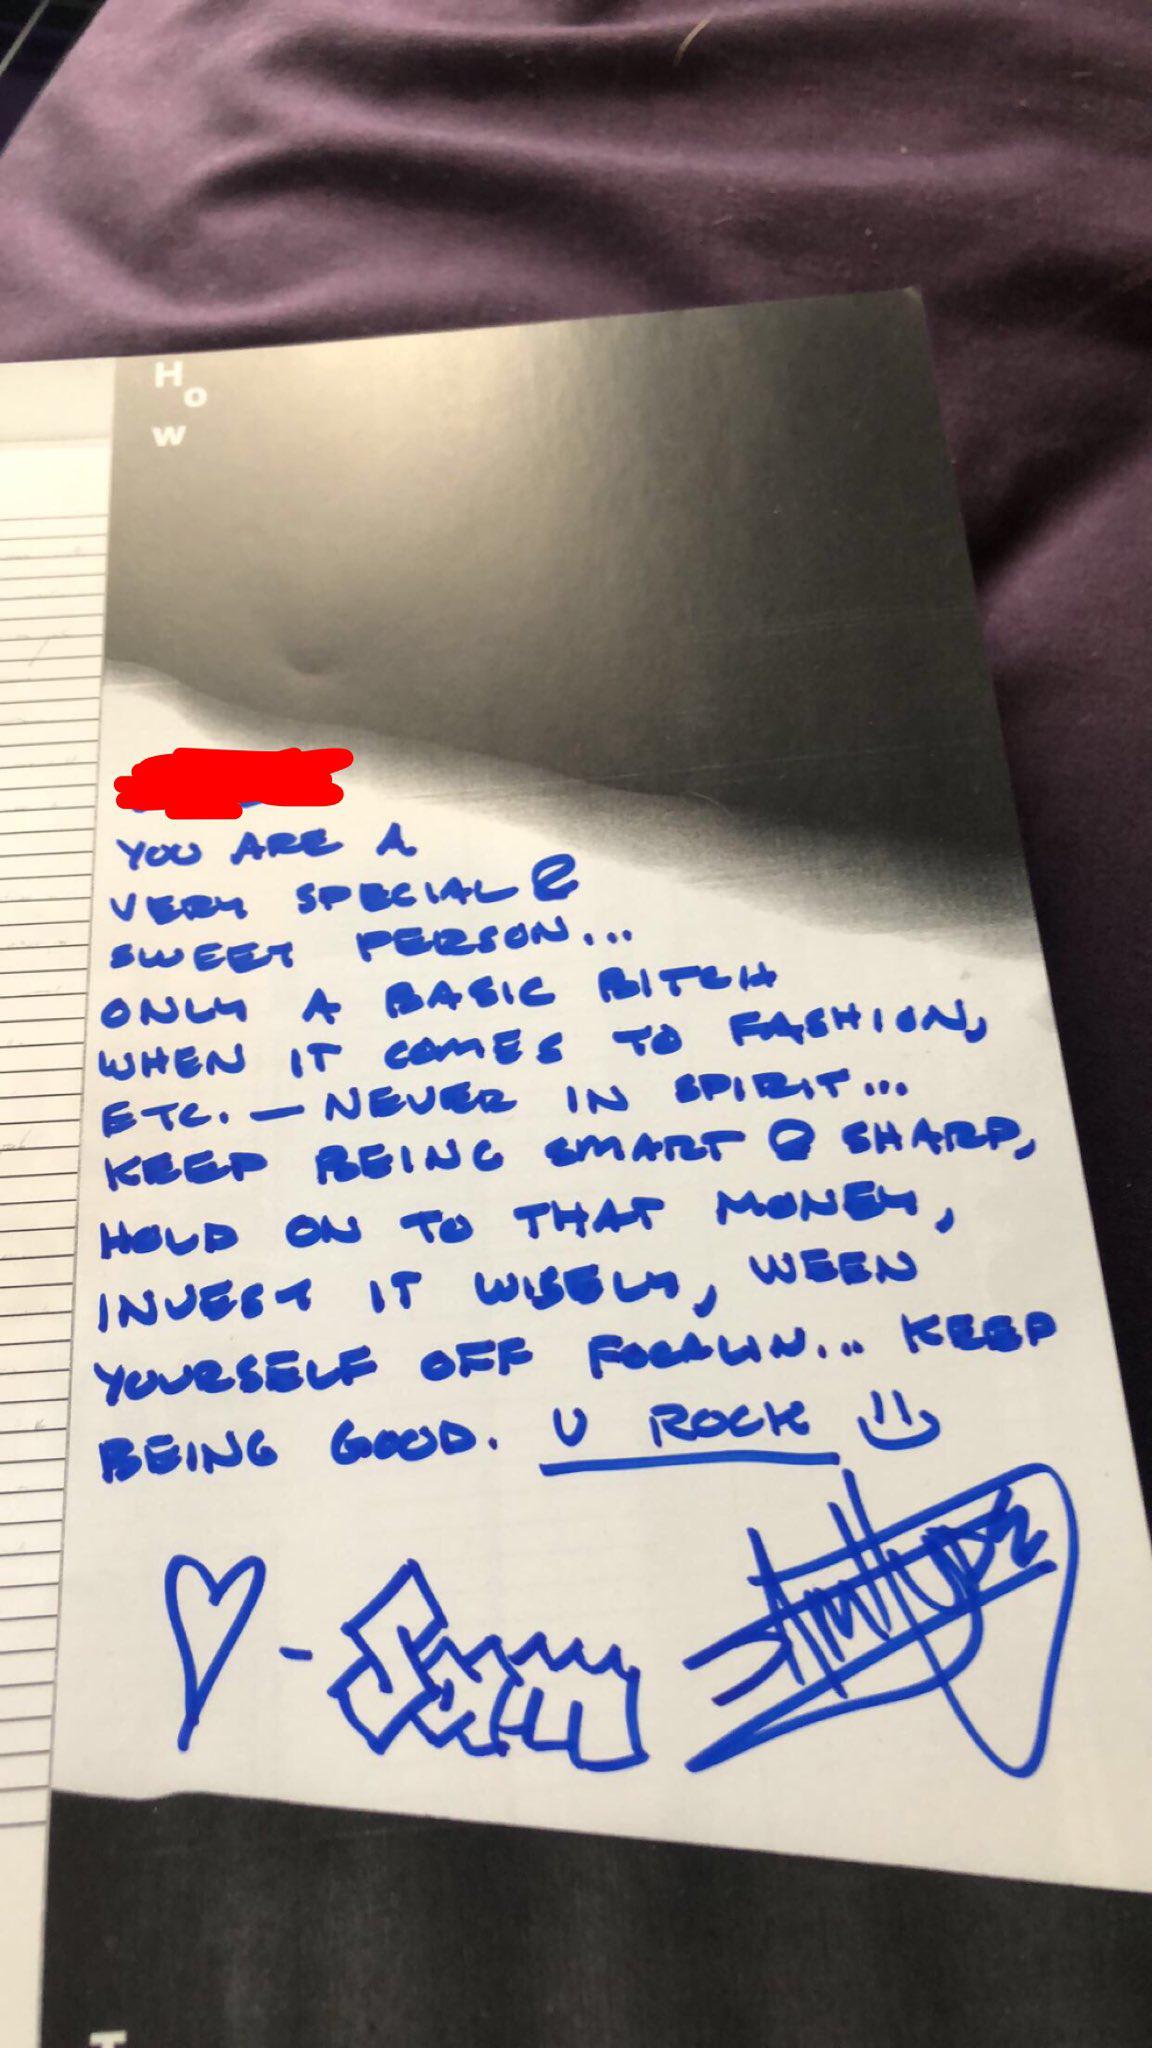 H
o
w
YOU ARE A
VERY SPECIAL &
SWEET PERSON...
ONLY A BASIC BITCH
WHEN IT COMES TO FASHION,
ETC. — NEVER IN SPIRIT...
KEEP BEING SMART & SHARP,
HOLD ON TO THAT MONEY,
INVEST IT WISELY, WEEN
YOURSELF OFF FOCALIN... KEEP
BEING GOOD. U ROCK